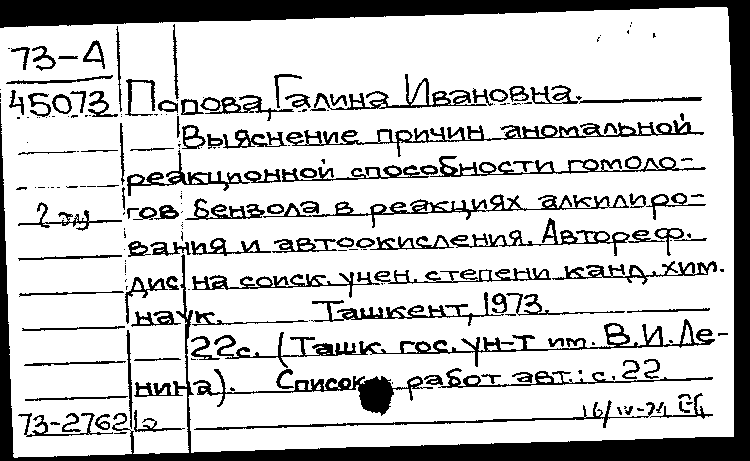 73-А
45073 Попова, Галина Ивановна.
Выяснение причин аномальной
реакционной способности гомоло-
гов бензола в реакциях алкилиро-
вания и автоокисления. Автореф.
дис. на соиск. учен. степени канд. хим.
наук. Ташкент, 1973.
22с. (Ташк. гос. ун-т им. В.И. Ле-
нина). Список работ авт.: с. 22.
73-2762